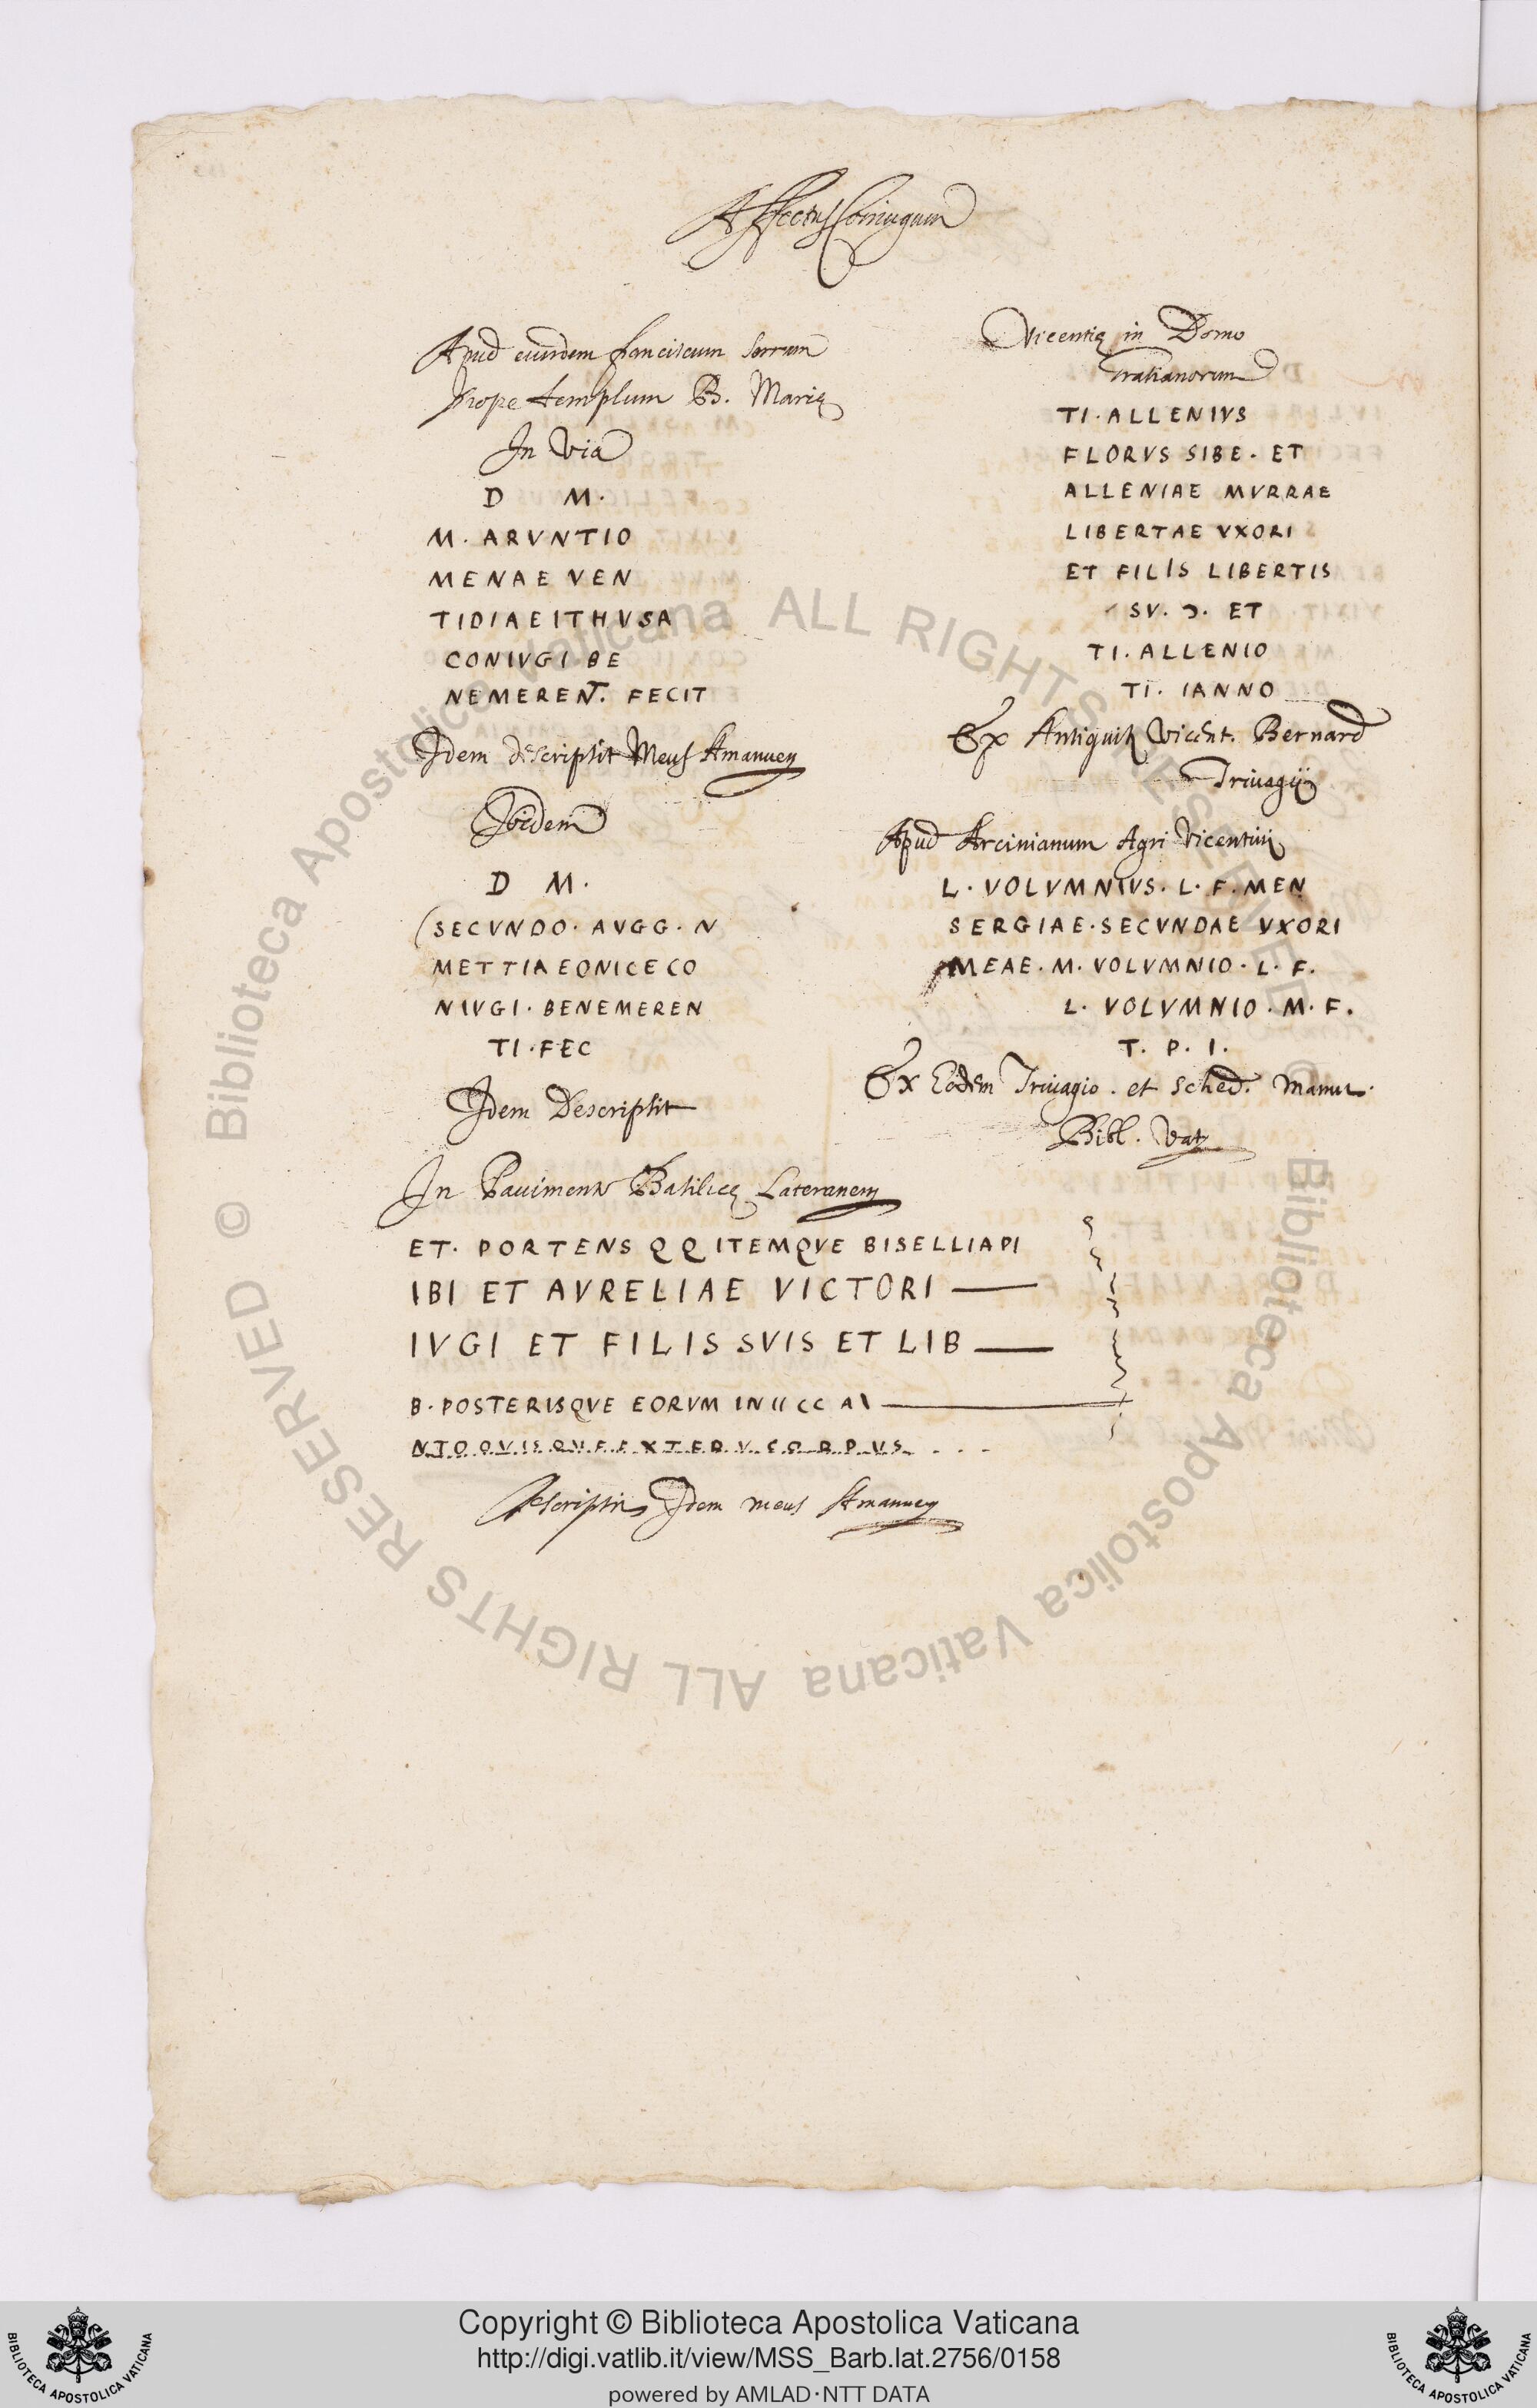 Affectus Coniugum
Apud eiusdem franciscum
prope templum B. Marię
In Via
D M.
M. ARVNTIO
MENAE VEN
TIDIAE ITHVSA
CONIVGI BE
NEMERENT. FECIT
Idem descripsit Meus Amanuen
Ibidem
D M.
(SECVNDO. AVGG. N
METTIA EONICECO
NIVGI. BENEMEREN
TI. FEC
Idem Descripsit
In Pavimento Basilicę Lateranen
ET. PORTENS QQ ITEMQVE BISELLIAPI
IBI ET AVRELIAE VICTORI
IVGI ET FILIS SVIS ET LIB
B. POSTERISQVE EORVM IN II CC A\
NTOQVISQVEEXTERVCORPVS . . .
descripsit Idem meus Amanuen
Vicentię in Domo
Tratianorum
TI. ALLENIVS
FLORVS SIBE. ET
ALLENIAE MVRRAE
LIBERTAE VXORI
ET FILIS LIBERTIS
SV. Ɔ. ET
TI. ALLENIO
TI. IANNO
Ex Antiquit Vicent. Bernard
Trivagij
Apud Arcinianum Agri Vicentini
L. VOLVMNIVS. L. F. MEN
SERGIAE. SECVNDAE VXORI
MEAE. M. VOLVMNIO. L. F.
L. VOLVMNIO. M. F.
T. P. I.
Ex Eodem Trivagio. et sched. Manut.
Bibl. Vat
© Biblioteca Apostolica Vaticana ALL RIGHTS RESERVED
© Biblioteca Apostolica Vaticana ALL RIGHTS RESERVED
Copyright © Biblioteca Apostolica Vaticana
http://digi.vatlib.it/view/MSS_Barb.lat.2756/0158
powered by AMLAD·NTT DATA
BIBLIOTECA APOSTOLICA VATICANA
BIBLIOTECA APOSTOLICA VATICANA